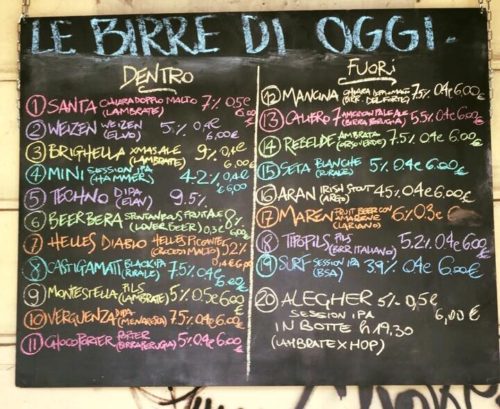 LE BIRRE DI OGGI.
DENTRO
1 SANTA CHIARA DOPPIO MALTO 7% 0,5€
(LAMBRATE) 6,00€
2 WEIZEN WEIZEN 5% 0,4€
(ELVO) 6,00€
3 BRIGHELLA XMAS ALE 9% 0,4€
(LAMBRATE) 6,00
4 MINI SESSION IPA 4.2% 0,4€
(HAMMERS) 6,00
5 TECHNO DIPA 9.5%
(ELAV)
6 BEERBERA SPONTANEOUS FRUIT ALE 8%
(LOVERBEER) 0,3€ 6,00
7 HELLES DIABLO HELLES PICCANTE 5,2%
(CROCE DI MALTO) 0,4€ 6,00
8 CASTIGAMATT BLACK IPA 7.5% 0.4€ 6.00€
(RURALE)
9 MONTESTELLA PILS 5% 0.5€ 6.00€
(LAMBRATE)
10 VERGUENZA DIPA 7.5% 0.4€ 6.00€
(MENARESTA)
11 CHOCOPORTER PORTER 5% 0.4€ 6.00€
(BIRRA PERUGIA)
FUORI
12 MANCINA CHIARA 7.5% 0.4€ 6.00€
(BIR. DEL FORTE)
13 CALIBRO 7 AMERICAN PALE ALE 5.5% 0.4€ 6.00€
(BIRRA PERUGIA)
14 REBELDE AMBRATA 7.5% 0.4€ 6.00€
(ORSO VERDE)
15 SETA BLANCHE 5% 0.4€ 6.00€
(RURALE)
16 ARAN IRISH STOUT 45% 0.4€ 6.00€
17 MAREN FRUIT BEER CON 6% 0.3€ 6.00€
AMARENE
(LARIANO)
18 TIPOPILS PILS 5.2% 0.4€ 6.00€
(BIRR. ITALIANO)
19 SURF SESSION IPA 3.9% 0.4€ 6.00€
(BSA)
20 ALEGHER 5% 0,5€
SESSION IPA 6,00€
IN BOTTE h 19,30
(LAMBRATE X HOP)